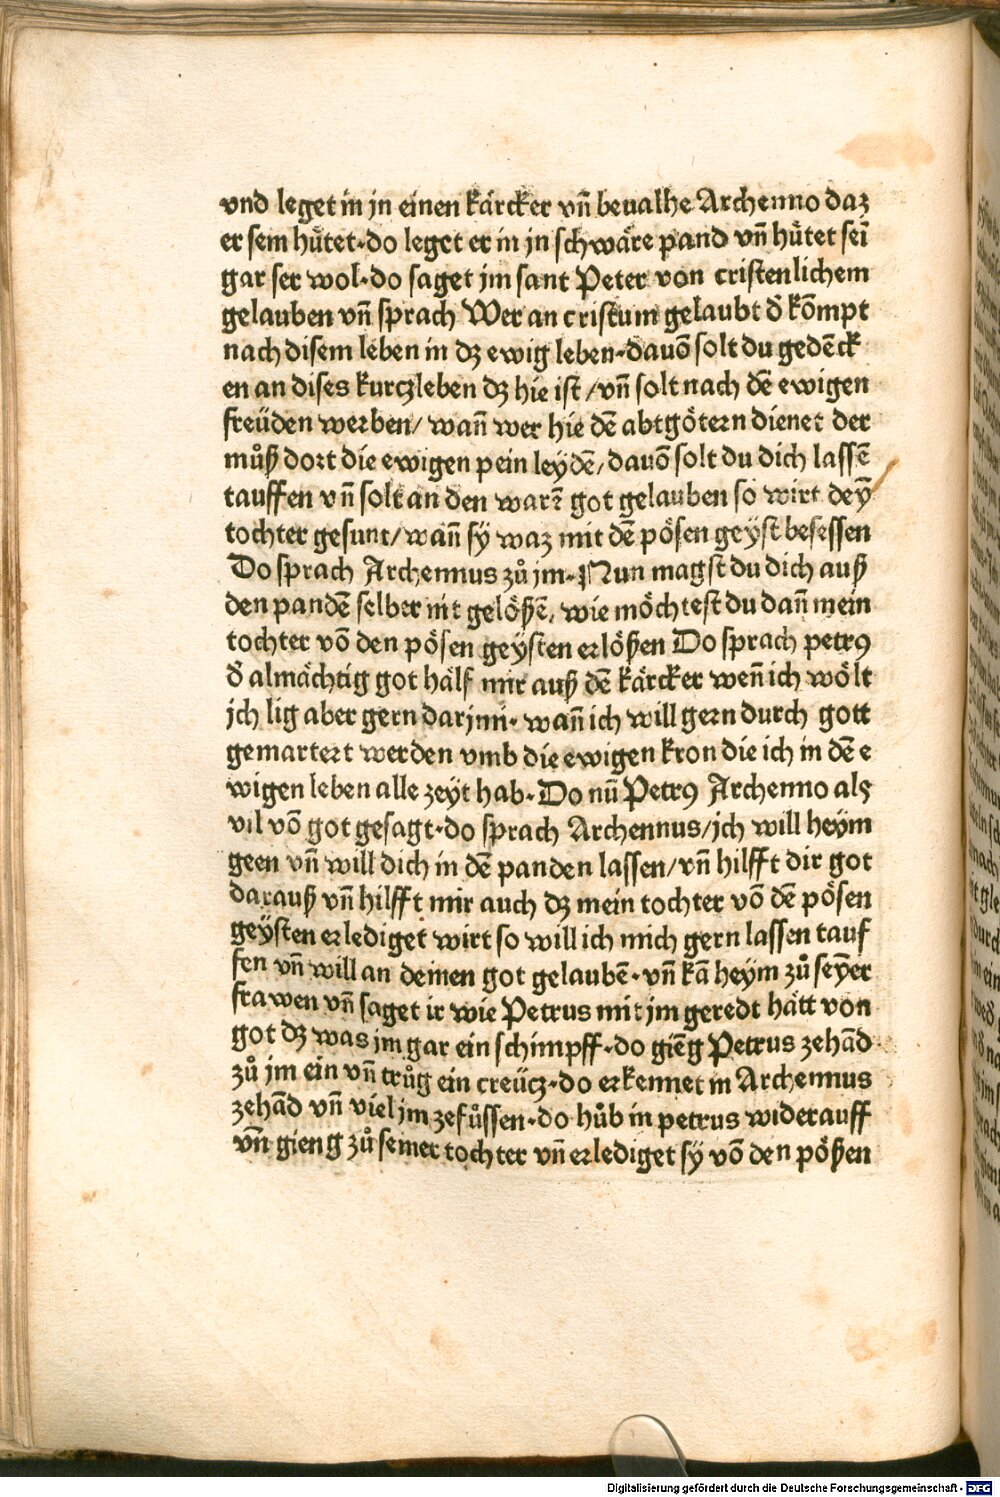 vnd leget in jn einen kärcker vn̄ beualhe Archenno daz
er sein hůtet·do leget er in jn schwäre pand vn̄ hůtet seī
gar ser wol·do saget jm sant Peter von cristenlichem
gelauben vn̄ sprach Wer an cristum gelaubt d̕ kōmpt
nach disem leben in dz ewig leben·dauō solt du gedēck
en an dises kurczleben dz hie ist/vn̄ solt nach dē ewigen
freüden werben/wann̄ wer hie dē abtgötern dienet der
můß dort die ewigen pein leydē/dauō solt du dich lassē
tauffen vn̄ solt an den warē got gelauben so wirt deȳ
tochter gesunt/wann̄ sy waz mit dē pösen geyst besessen
Do sprach Archennus zů jm·Nun magst du dich auß
den pandē selber nit gelößē/wie möchtest du dann̄ mein
tochter vō den pösen geysten erlößen Do sprach petrꝰ
d̕ almächtig got hälf mir auß dē kärcker wenn̄ ich wölt
jch lig aber gern darjnn·wann̄ ich will gern durch gott
gemartert werden vmb die ewigen kron die ich in dē e
wigen leben alle zeyt hab·Do nū Petrꝰ Archenno als
vil vō got gesagt·do sprach Archennus/jch will heym
geen vn̄ will dich in dē panden lassen/vn̄ hilfft dir got
darauß vn̄ hilfft mir auch dz mein tochter vō dē pösen
geysten erlediget wirt so will ich mich gern lassen tauf
fen vn̄ will an deinen got gelaubē·vn̄ kā heym zů seȳer
frawen vn̄ saget ir wie Petrus mit jm geredt hätt von
got dz was jm gar ein schimpff·do giēg Petrus zehād
zů jm ein vn̄ trůg ein creücz·do erkennet in Archennus
zehād vn̄ viel jm zefůssen·do hůb in petrus widerauff
vn̄ gieng zů seiner tochter vn̄ erlediget sy vō den pößen
Digitalisierung gefördert durch die Deutsche Forschungsgemeinschaft - DFG